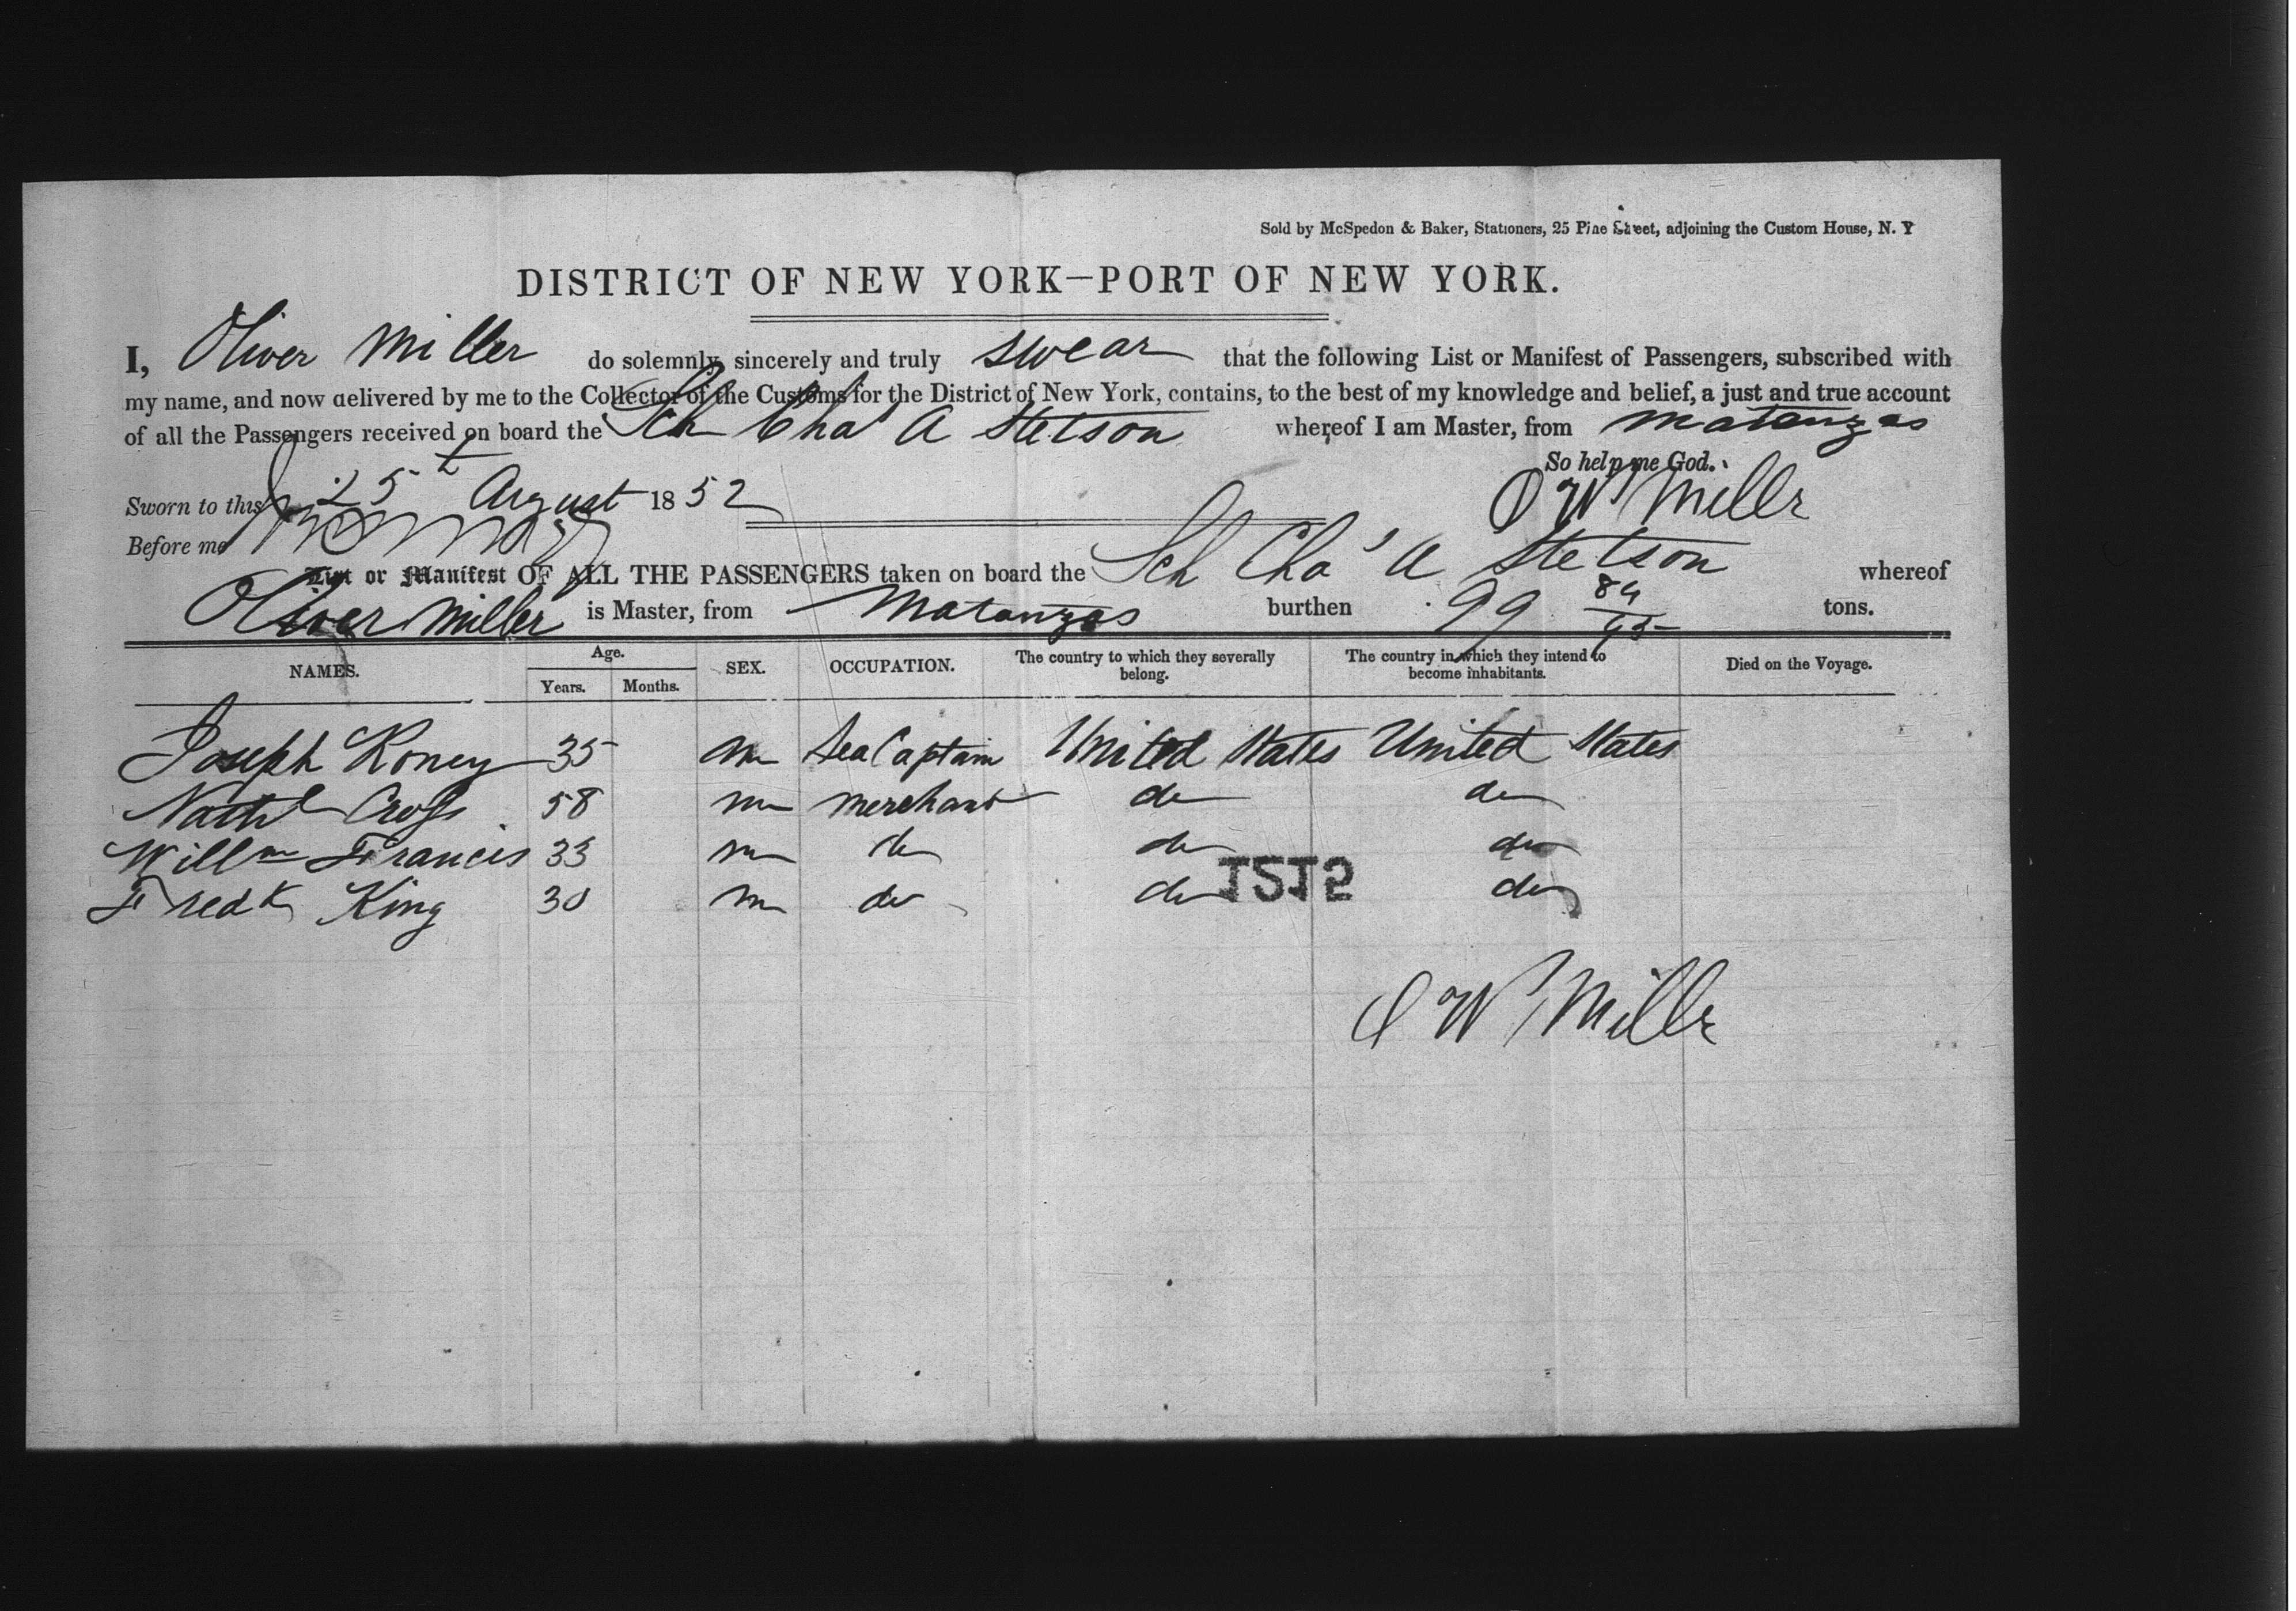 Sold by McSpedon & Baker, Stationers, 25 Pine Street, adjoining the Custom House, N. Y
DISTRICT OF NEW YORK—PORT OF NEW YORK.
I, Oliver Miller do solemnly, sincerely and truly swear that the following List or Manifest of Passengers, subscribed with
my name, and now delivered by me to the Collector of the Customs for the District of New York, contains, to the best of my knowledge and belief, a just and true account
of all the Passengers received on board the Sch Chas A Stetson whereof I am Master, from Matanzas
So help me God.
Sworn to this 25th August 1852 O W Miller
Before me
List or Manifest OF ALL THE PASSENGERS taken on board the Sch Cha' A Stetson whereof
Oliver Miller is Master, from Matanzas burthen 99 84/95 tons.
NAMES. Age. Years. Months. SEX. OCCUPATION. The country to which they severally belong. The country in which they intend to become inhabitants. Died on the Voyage.
Joseph Roney 35 m Sea Captain United States United States
Nathl Cross 58 m merchant do do
Willm Francis 33 m do do do
Fredk King 30 m do do do
1212
O W Miller